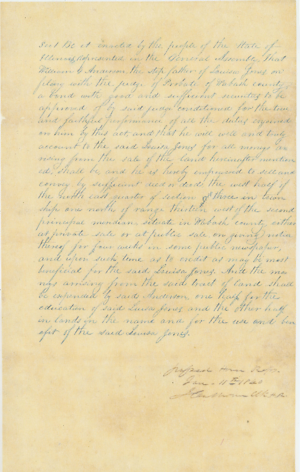 Sect 1st Be it enacted by the people of the State of
Illinois represented in the General Assembly, That
William C. Anderson the step father of Louisa Jones on
filing with the judge of Probate of Wabash County,
a bond with good and sufficient security to be
approved of by said judge conditioned for the true
and faithful performance of all the duties required
on him by this act, and that he will well and truly
account to the said Louisa Jones for all moneys ari
sing from the sale of the land hereinafter mention
ed, shall be and he is hereby empowered to sell and
convey by sufficient deed or deeds the west half of
the north east quarter of section three in town
ship one north of range thirteen west of the second
principal meridian situate in Wabash county, either
at private sale or at public sale on giving notice
thereof for four weeks in some public newspaper,
and upon such terms as to credit as may be most
beneficial for the said Louisa Jones. And the mo
neys arising from the said tract of land shall
be expended by said Anderson one half for the
education of said Louisa Jones and the other half
in lands in the name and for the use and ben
efit of the said Louisa Jones.
Jan. 11th